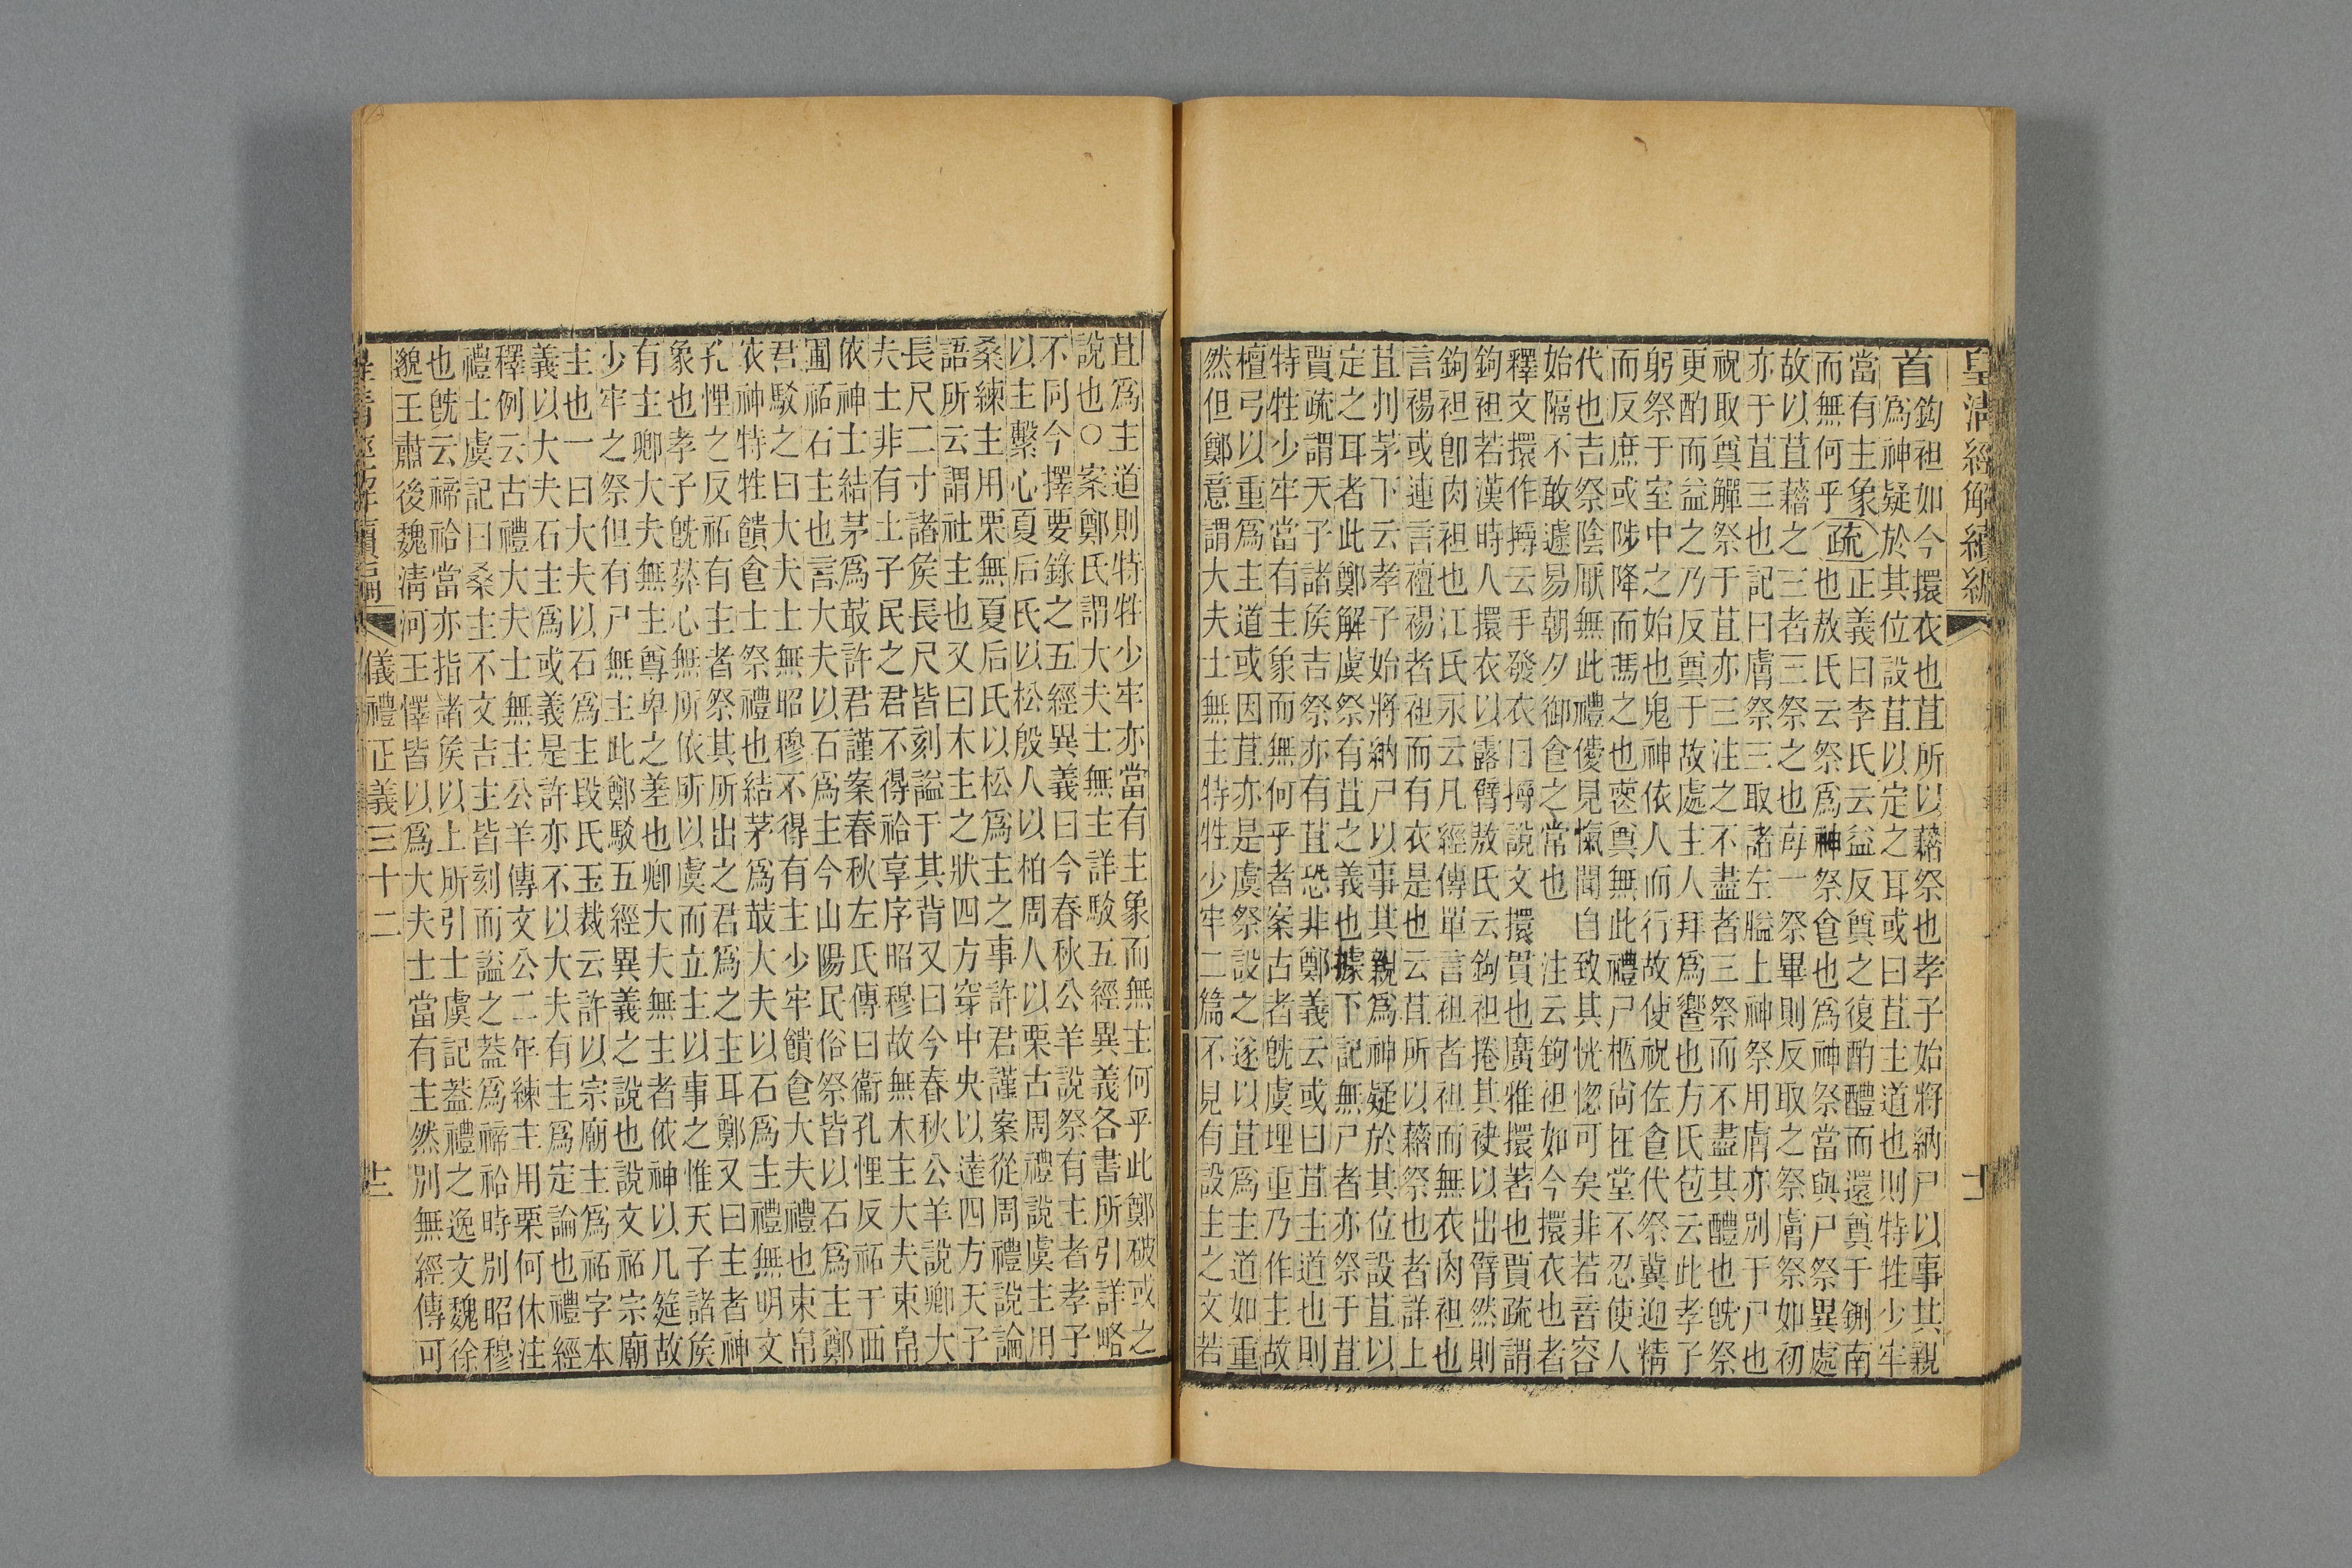 皇清經解續編
首
鉤袒如今擐衣也苴所以藉祭也孝子始將納尸以事其親
爲神疑於其位設苴以定之耳或曰苴主道也則特牲少牢
當有主象
而無何乎
疏
正義曰李氏云益反奠之復酌醴而還奠于鉶南
也敖氏云祭爲神祭食也爲神祭當與尸祭異處
故以苴藉之三者三祭之也每一祭畢則反取之祭膚祭如初
亦于苴三也記曰膚祭三取諸左膉上神祭用膚亦別于尸也
祝取奠觶祭于苴亦三注之不盡者三祭而不盡其醴也旣祭
更酌而益之乃反奠于故處主人拜爲饗也方氏苞云此孝子
躬祭于室中之始也鬼神依人而行故使祝佐食代祭冀迎精
而反庶或陟降而馮之也喪奠無此禮尸柩尚在堂不忍使人
代也吉祭陰厭無此禮僾見愾聞自致其恍惚可矣非若音容
始隔不敢遽易朝夕御食之常也 注云鉤袒如今擐衣也者
釋文擐作云手發衣曰說文擐貫也廣雅擐著也賈疏謂
鉤袒若漢時人擐衣以露臂敖氏云鉤袒捲其袂以出臂然則
鉤袒卽肉袒也江氏永云凡經傳單言袒者袒而無衣肉袒也
言裼或連言襢裼者袒而有衣是也云苴所以藉祭也者詳上
苴刌茅下云孝子始將納尸以事其親爲神疑於其位設苴以
定之耳者此鄭解虞祭有苴之義也據下記無尸者亦祭于苴
賈疏謂天子諸侯吉祭亦有苴恐非鄭義云或曰苴主道也則
特牲少牢當有主象而無何乎者案古者旣虞埋重乃作主故
檀弓以重爲主道或因苴亦是虞祭設之遂以苴爲主道如重
然但鄭意謂大夫士無主特牲少牢二篇不見有設主之文若
苴爲主道則特牲少牢亦當有主象而無主何乎此鄭破或之
說也○案鄭氏謂大夫士無主詳駁五經異義各書所引詳略
不同今擇要錄之五經異義曰今春秋公羊說祭有主者孝子
以主繫心夏后氏以松殷人以柏周人以栗古周禮說虞主用
桑練主用栗無夏后氏以松爲主之事許君謹案從周禮說論
語所云謂社主也又曰木主之狀四方穿中央以達四方天子
長尺二寸諸侯長尺皆刻謚于其背又曰今春秋公羊說卿大
夫士非有土子民之君不得祫享序昭穆故無木主大夫束帛
依神士結茅爲菆許君謹案春秋左氏傳曰衞孔悝反祏于西
圃祏石主也言大夫以石爲主今山陽民俗祭皆以石爲主鄭
君駁之曰大夫士無昭穆不得有主少牢饋食大夫禮也束帛
依神特牲饋食士祭禮也結茅爲菆大夫以石爲主禮無明文
孔悝之反祏有主者祭其所出之君爲之主耳鄭又曰主者神
象也孝子旣葬心無所依所以虞而立主以事之惟天子諸侯
有主卿大夫無主尊卑之差也卿大夫無主者依神以几筵故
少牢之祭但有尸無主此鄭駁五經異義之說也說文祏宗廟
主也一曰大夫以石爲主段氏玉裁云許以宗廟主爲祏字本
義以大夫石主爲或義是許亦不以大夫有主爲定論也禮經
釋例云古禮大夫士無主公羊傳文公二年練主用栗何休注
禮士虞記曰桑主不文吉主皆刻而謚之蓋爲禘祫時別昭穆
也旣云禘祫當亦指諸侯以上所引士虞記蓋禮之逸文魏徐
邈王肅後魏清河王懌皆以爲大夫士當有主然別無經傳可
皇清經解續編 儀禮正義三十二 十二